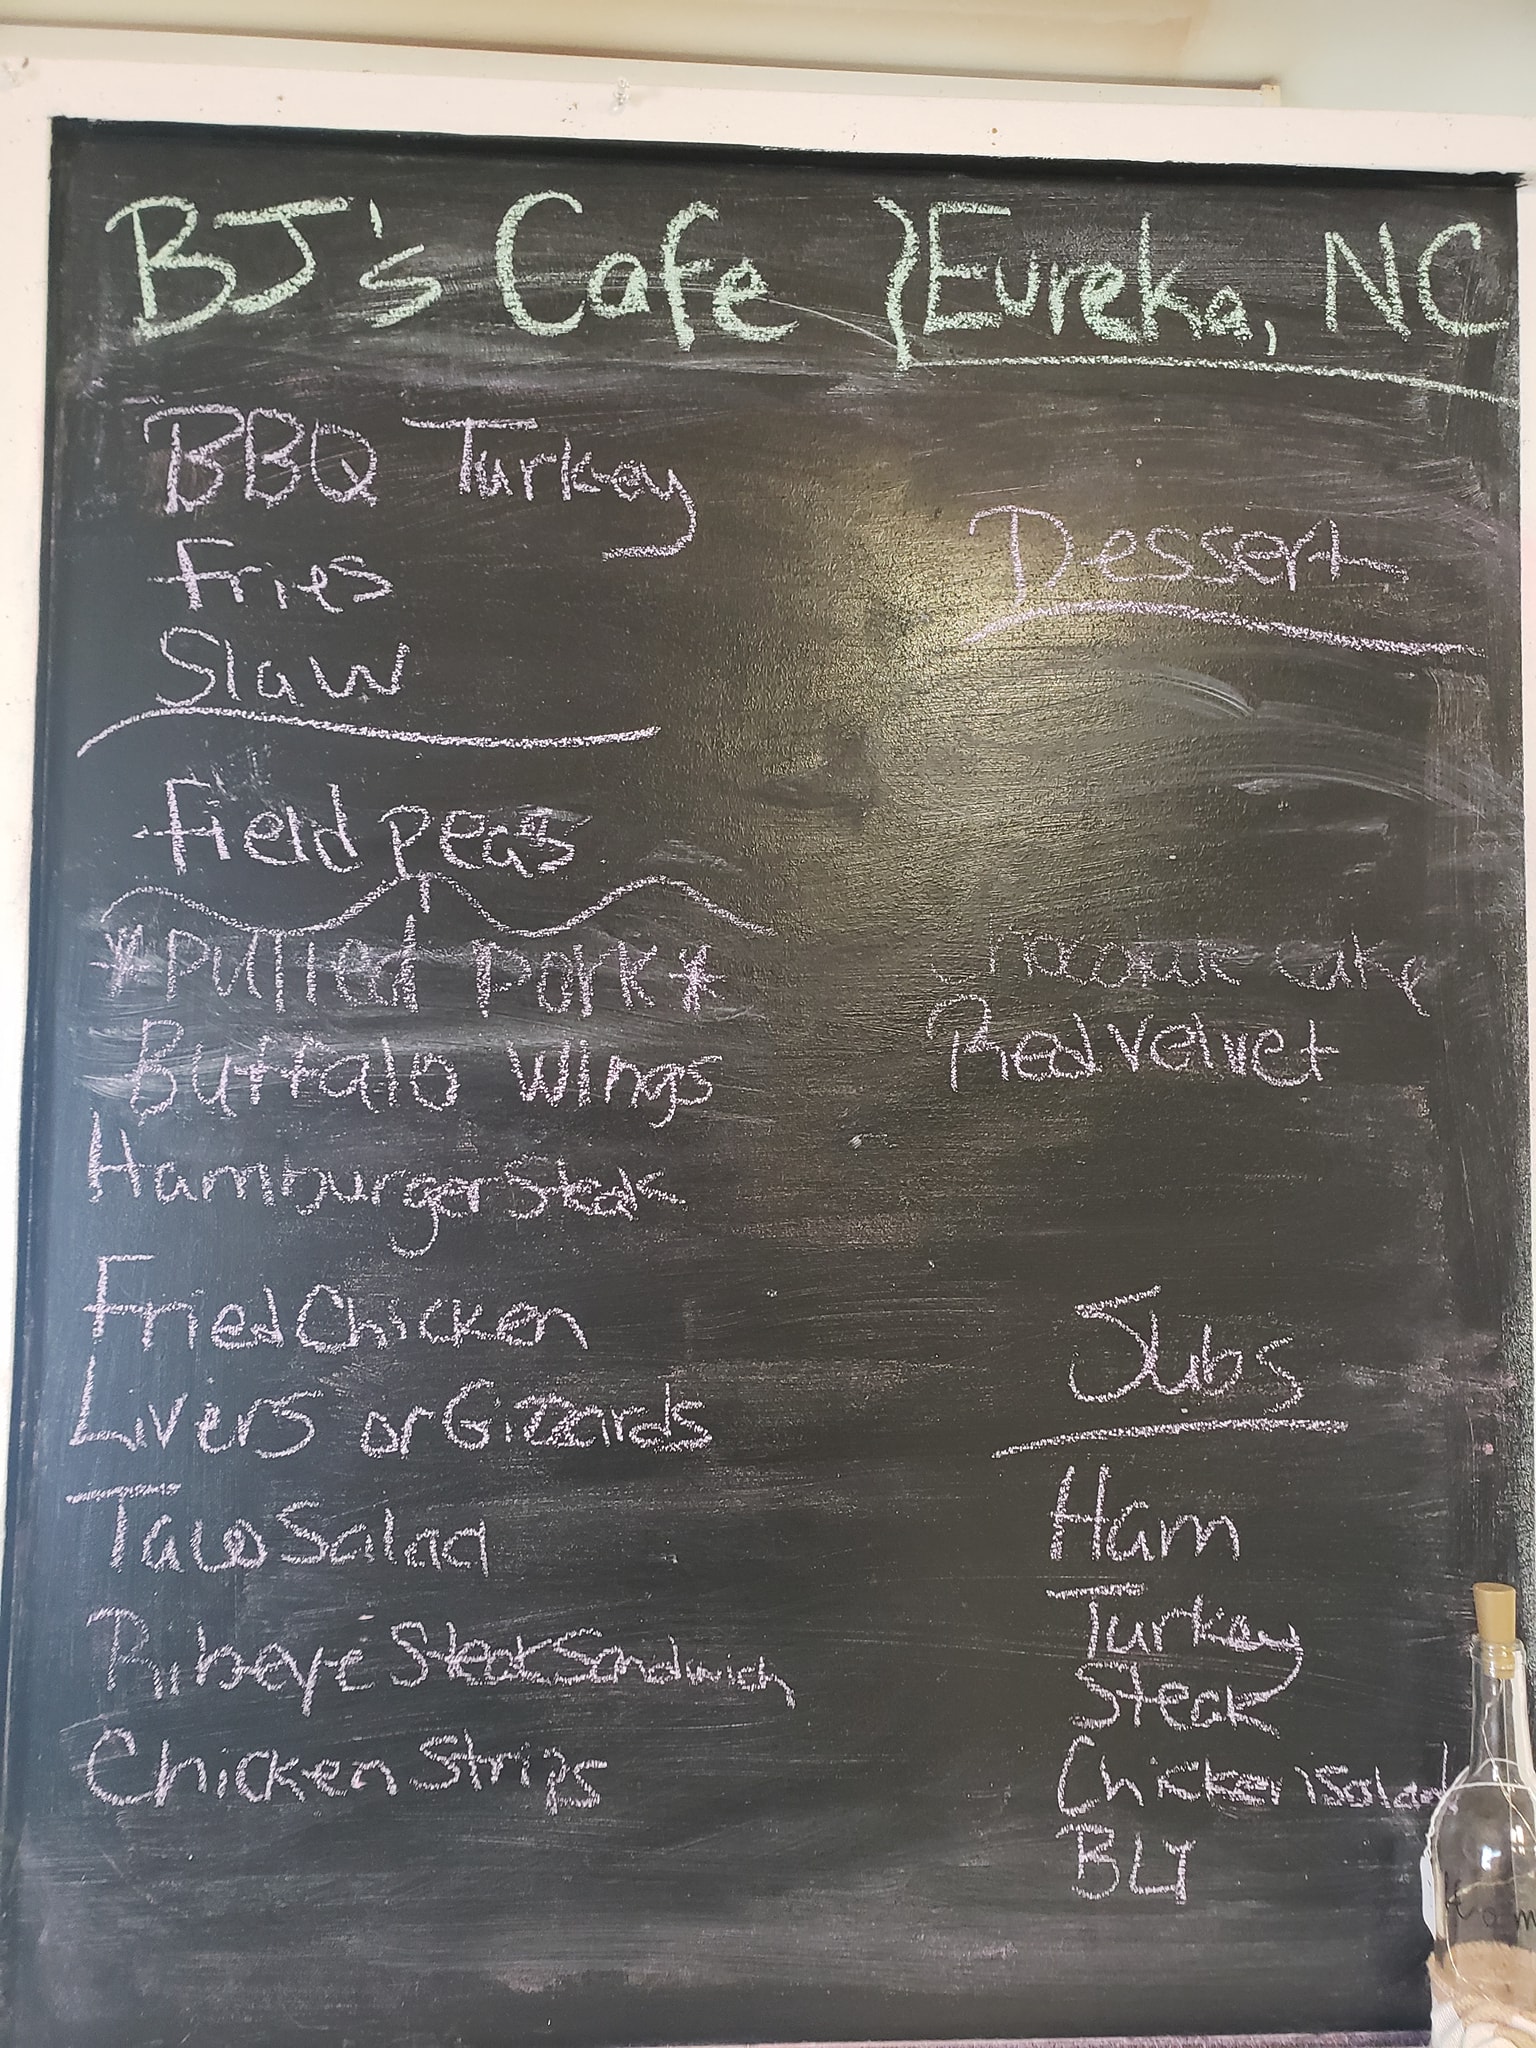 BJ's Cafe } Eureka, NC
BBQ Turkey
Fries
Slaw
Field peas
*Pulled pork*
Buffalo Wings
Hamburger Steak
Fried Chicken
Livers or Gizzards
Taco Salad
Ribeye Steak Sandwich
Chicken Strips
Dessert
Chocolate Cake
Red Velvet
Subs
Ham
Turkey
Steak
Chicken Salad
BLT